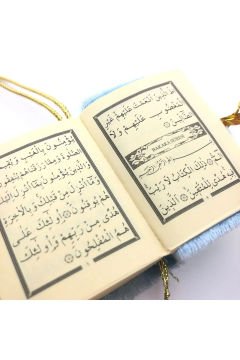 اَلَّذِينَ اَنْعَمْتَ عَلَيْهِمْ غَيْرِ
الْمَغْضُوبِ عَلَيْهِمْ وَلَا
الضَّالِّينَ
BAKARA SURESİ
بِسْمِ اللهِ الرَّحْمٰنِ الرَّحِيمِ
الٓمٓ ذٰلِكَ الْكِتَابُ لَا رَيْبَ
فِيهِ هُدًى لِلْمُتَّقِينَ اَلَّذِينَ
يُؤْمِنُونَ بِالْغَيْبِ وَيُقِيمُونَ
الصَّلٰوةَ وَمِمَّا رَزَقْنَاهُمْ يُنْفِقُونَ
وَالَّذِينَ يُؤْمِنُونَ بِمَا اُنْزِلَ اِلَيْكَ
وَمَا اُنْزِلَ مِنْ قَبْلِكَ وَبِالْاٰخِرَةِ
هُمْ يُوقِنُونَ اُولٰٓئِكَ عَلٰى
هُدًى مِنْ رَبِّهِمْ وَاُولٰٓئِكَ
هُمُ الْمُفْلِحُونَ